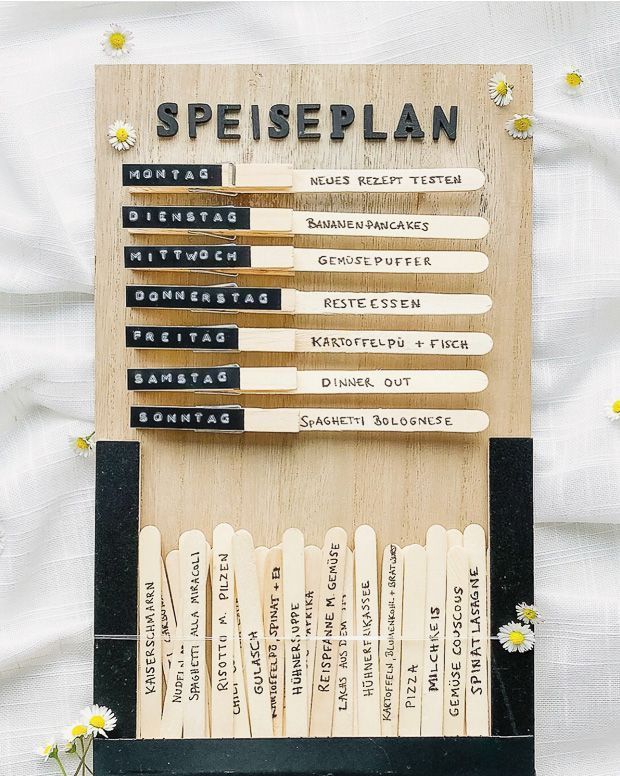 SPEISEPLAN
MONTAG NEUES REZEPT TESTEN
DIENSTAG BANANENPANCAKES
MITTWOCH GEMÜSEPUFFER
DONNERSTAG RESTEESSEN
FREITAG KARTOFFELPÜ + FISCH
SAMSTAG DINNER OUT
SONNTAG SPAGHETTI BOLOGNESE
KAISERSCHMARRN
NUDELN
SPAGHETTI ALLA MIRACOLI
RISOTTO M. PILZEN
CHILI
GULASCH
KARTOFFELPÜ, SPINAT +
HÜHNERSUPPE
REISPFANNE M. GEMÜSE
LACHS AUS DEM
HÜHNERFRIKASSEE
KARTOFFELN, BLUMENKOHL + BRATWURST
PIZZA
MILCHREIS
GEMÜSE COUSCOUS
SPINATLASAGNE